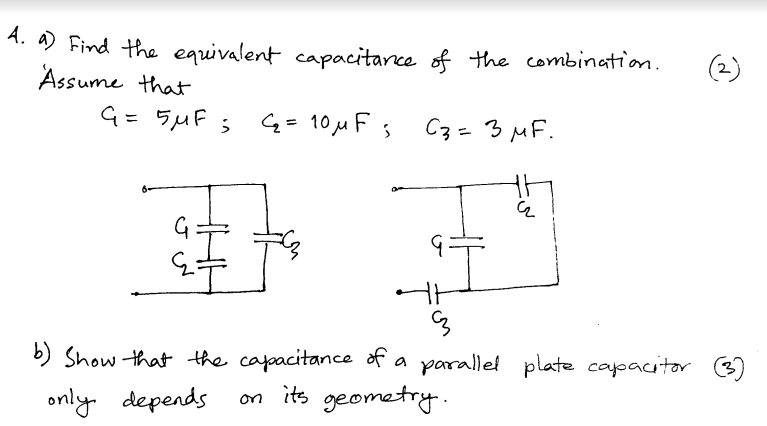 4. a) Find the equivalent capacitance of the combination. (2)
Assume that
C₁ = 5μF ; C₂ = 10μF ; C₃ = 3 μF.
C₁
C₂
C₃
C₂
C₁
C₃
b) Show that the capacitance of a parallel plate capacitor (3)
only depends on its geometry.